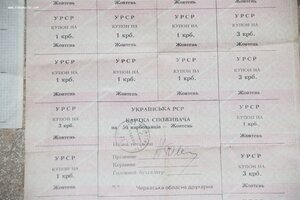 Жовтень Жовтень Жовтень Жовтень
УРСР УРСР УРСР УРСР
КУПОН НА КУПОН НА КУПОН НА КУПОН НА
1 крб. 1 крб. 1 крб. 3 крб.
Жовтень Жовтень Жовтень Жовтень
УРСР УРСР УРСР УРСР
КУПОН НА КУПОН НА КУПОН НА КУПОН НА
1 крб. 1 крб. 1 крб. 3 крб.
Жовтень Жовтень Жовтень Жовтень
УРСР УКРАЇНСЬКА РСР УРСР
КУПОН НА КАРТКА СПОЖИВАЧА КУПОН НА
3 крб. на 50 карбованців 3 крб.
Жовтень Жовтень Жовтень
УРСР Прізвище УРСР
КУПОН НА Керівник КУПОН НА
1 крб. Головний бухгалтер 3 крб.
Жовтень Черкаська обласна друкарня Жовтень